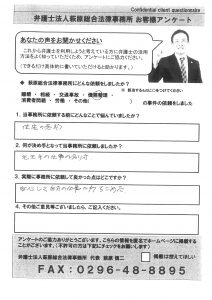 Confidential client questionnaire
弁護士法人萩原総合法律事務所 お客様アンケート
あなたの声をお聞かせください
これから弁護士を利用しようと考えている方に弁護士の活用
方法をよく知っていただくため、アンケートにご協力ください。
(できるだけ具体的に書いていただけると助かります。)
◆ 萩原総合法律事務所にどんな依頼をしましたか?
離婚・相続・交通事故・債務整理・
消費者問題・労働・その他( )の事件の依頼をしました
1. 当事務所に依頼する前にどんなことで悩んでいましたか?
2. 何が決め手となって当事務所に依頼しましたか?
3. 実際に当事務所に依頼して良かった点はどこですか?
4. その他ご意見等ございましたら、ご記入ください。
アンケートのご協力ありがとうございます。こちらの情報を匿名でホームページに掲載する
ことがございます。(不許可の方は下記にチェックをお願いします)
弁護士法人萩原総合法律事務所 代表 萩原 慎二
掲載は控えてほしい
FAX:0296-48-8895